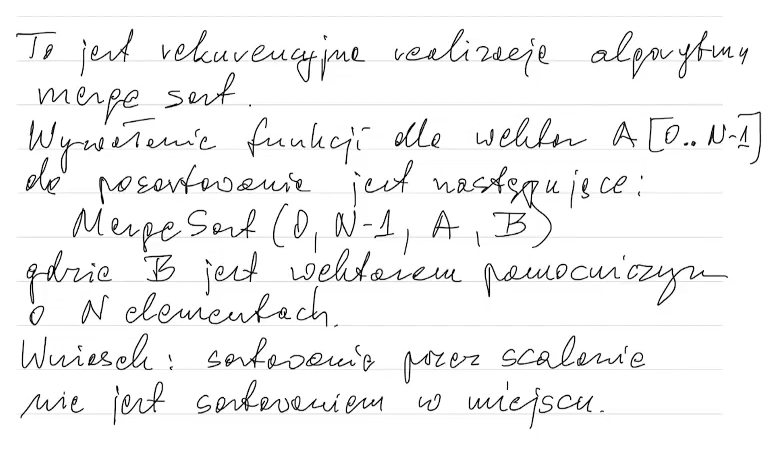 To jest rekurencyjna realizacja algorytmu
merge sort.
Wywołanie funkcji dla wektor A[0..N-1]
do posortowania jest następujące:
MergeSort(0, N-1, A, B)
gdzie B jest wektorem pomocniczym
o N elementach.
Wniosek: sortowanie przez scalanie
nie jest sortowaniem w miejscu.